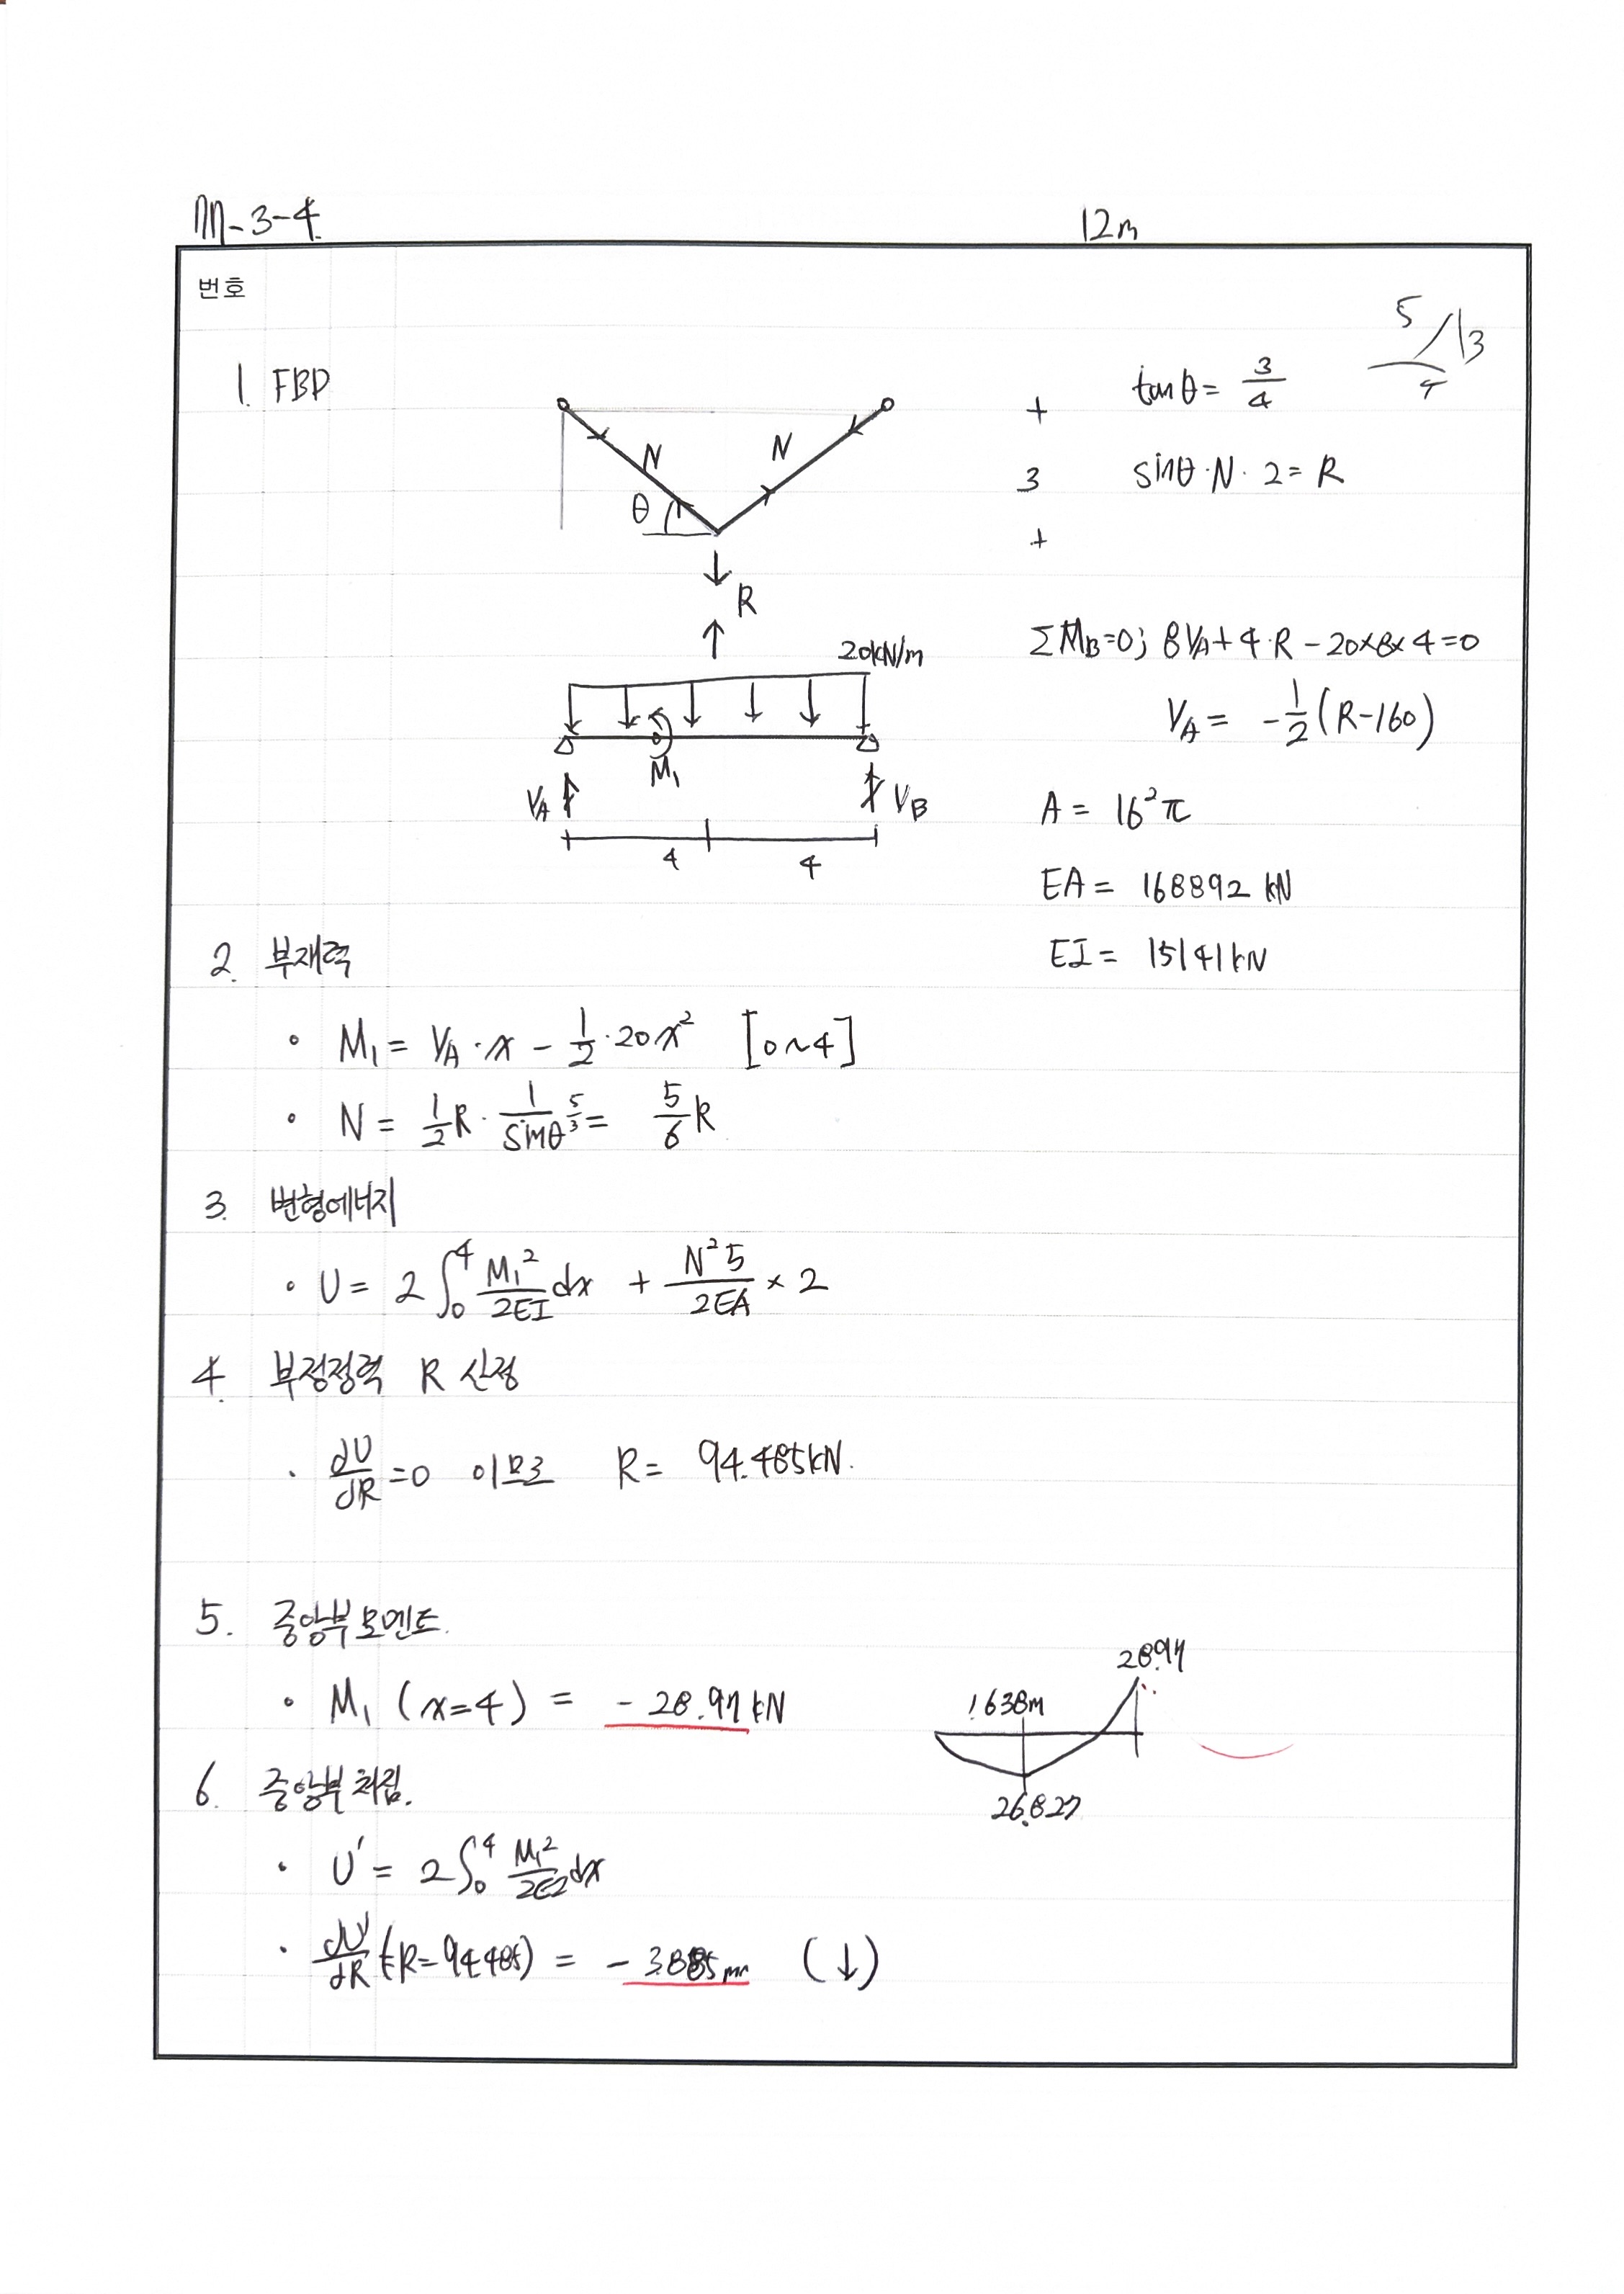 M-3-4
12m
번호
5/13
4
1. FBD
tanθ = 3/4
N
N
θ
+
3
+
sinθ·N·2 = R
R
20kN/m
ΣM_B=0; 8V_A+4·R-20×8×4=0
V_A = -1/2(R-160)
M₁
V_A
V_B
4
4
A = 16²π
EA = 168892 kN
EI = 15141kN
2. 부재력
• M₁ = V_A·x - 1/2·20x² [0~4]
• N = 1/2R·1/sinθ 5/3 = 5/6R
3. 변형에너지
• U = 2∫₀⁴ M₁²/2EI dx + N²5/2EA × 2
4. 부정정력 R 산정
· dU/dR = 0 이므로 R = 94.485kN.
5. 중앙부 모멘트.
• M₁ (x=4) = -28.97 kN
28.97
1.638m
26.827
6. 중앙부 처짐.
· U' = 2∫₀⁴ M₁²/2EI dx
· dU'/dR (R=94.485) = -3.885mm (↓)